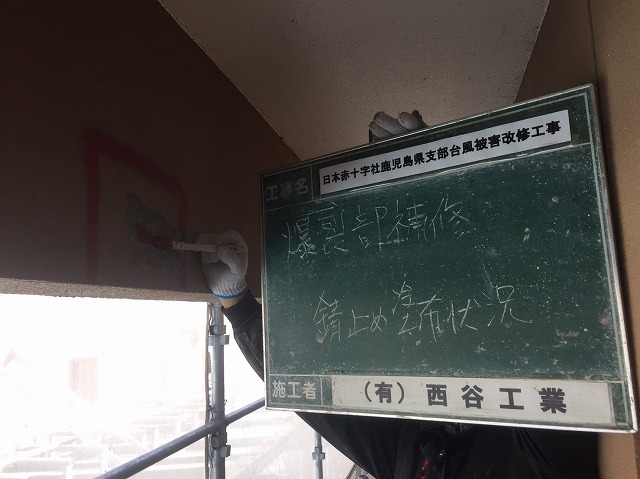 工事名
日本赤十字社鹿児島県支部台風被害改修工事
爆裂部補修
錆止め塗布状況
施工者
(有) 西谷工業